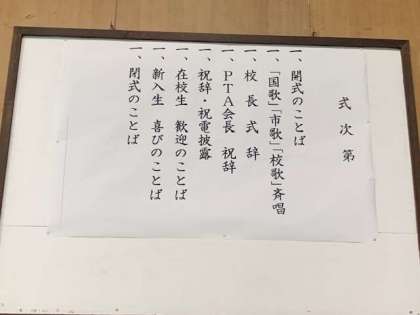 式次第
一、開式のことば
一、「国歌」「市歌」「校歌」斉唱
一、校長式辞
一、PTA会長 祝辞
一、祝辞・祝電披露
一、在校生 歓迎のことば
一、新入生 喜びのことば
一、閉式のことば